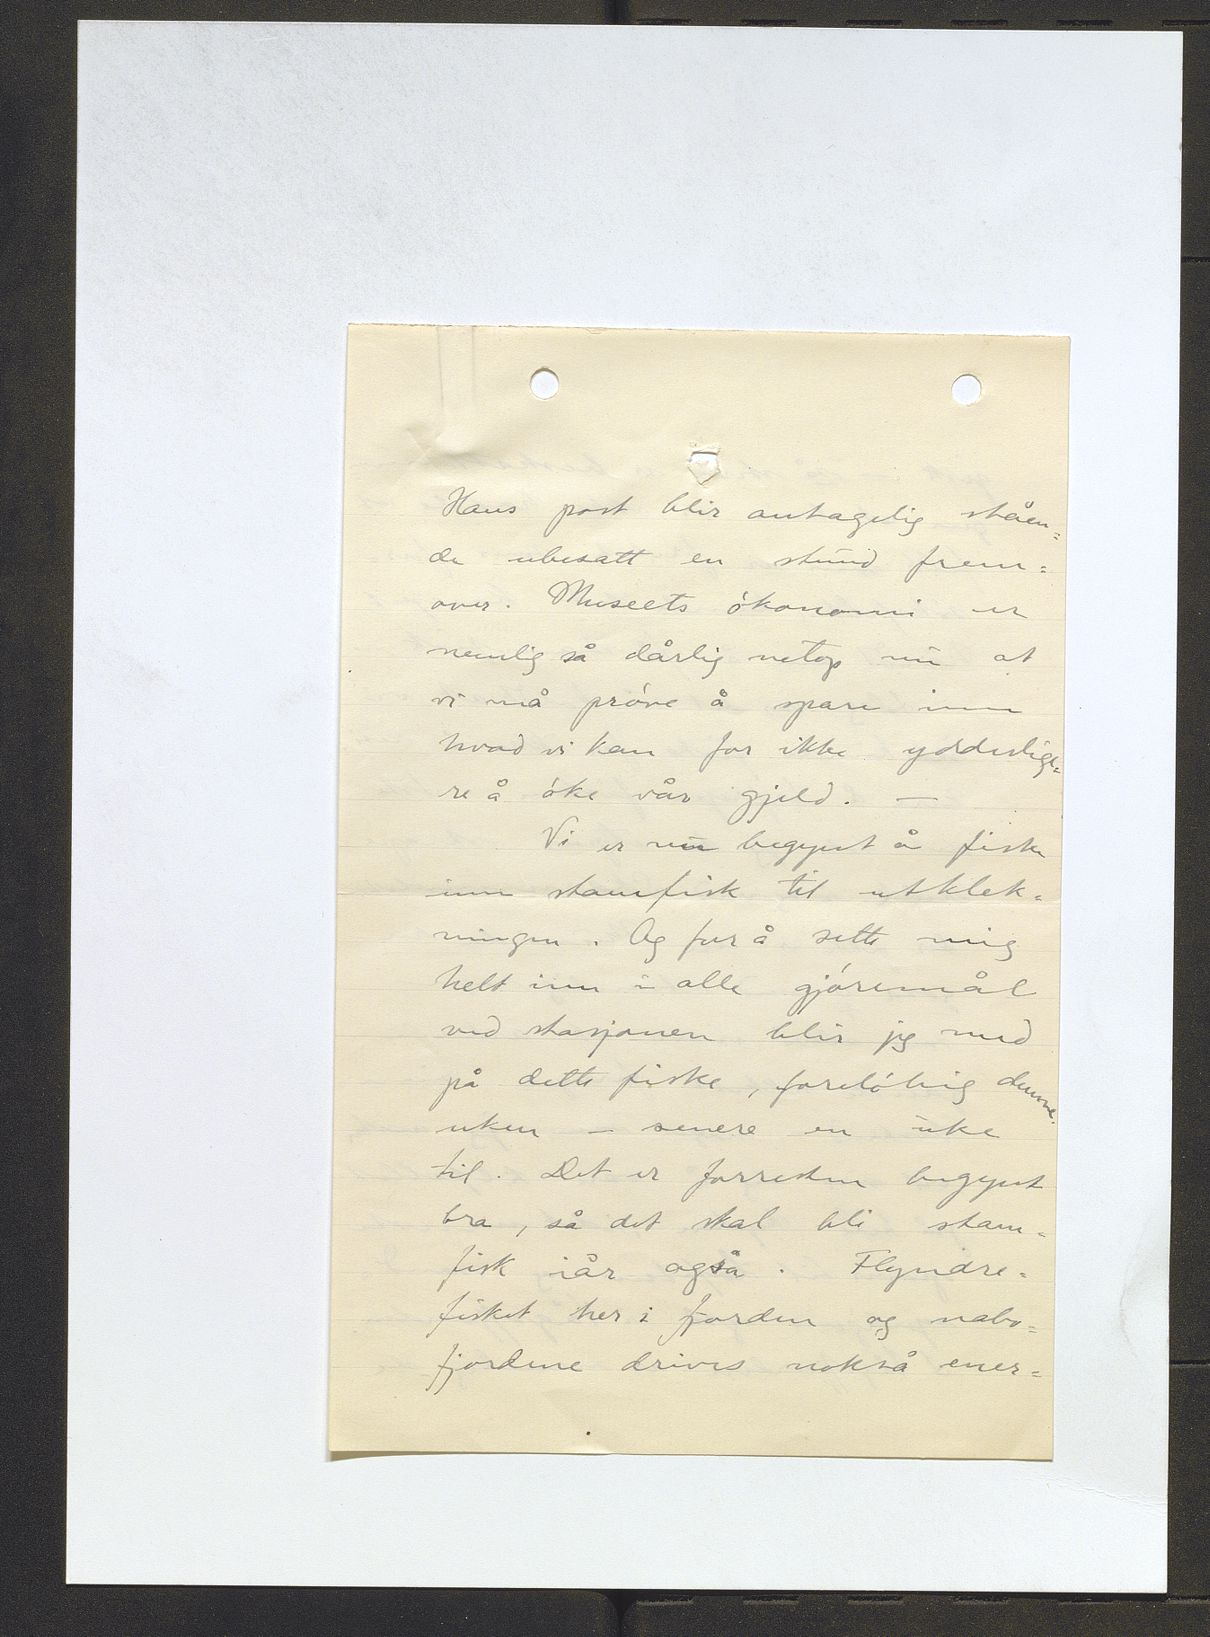 Hans post blir antagelig ståen=
de ubesatt en stund frem=
over. Museets økonomi er
nemlig så dårlig netop nu at
vi må prøve å spare inn
hvad vi kan for ikke ydderlige=
re å øke vår gjeld. —
Vi er nu begynt å fiske
inn stamfisk til utklek=
ningen. Og for å sette mig
helt inn i alle gjøremål
ved stasjonen blir jeg med
på dette fiske, foreløbig denne
uken – senere en uke
til. Det er forresten begynt
bra, så det skal bli stam=
fisk iår også. Flyndre=
fisket her i fjorden og nabo=
fjordene drives nokså ener=